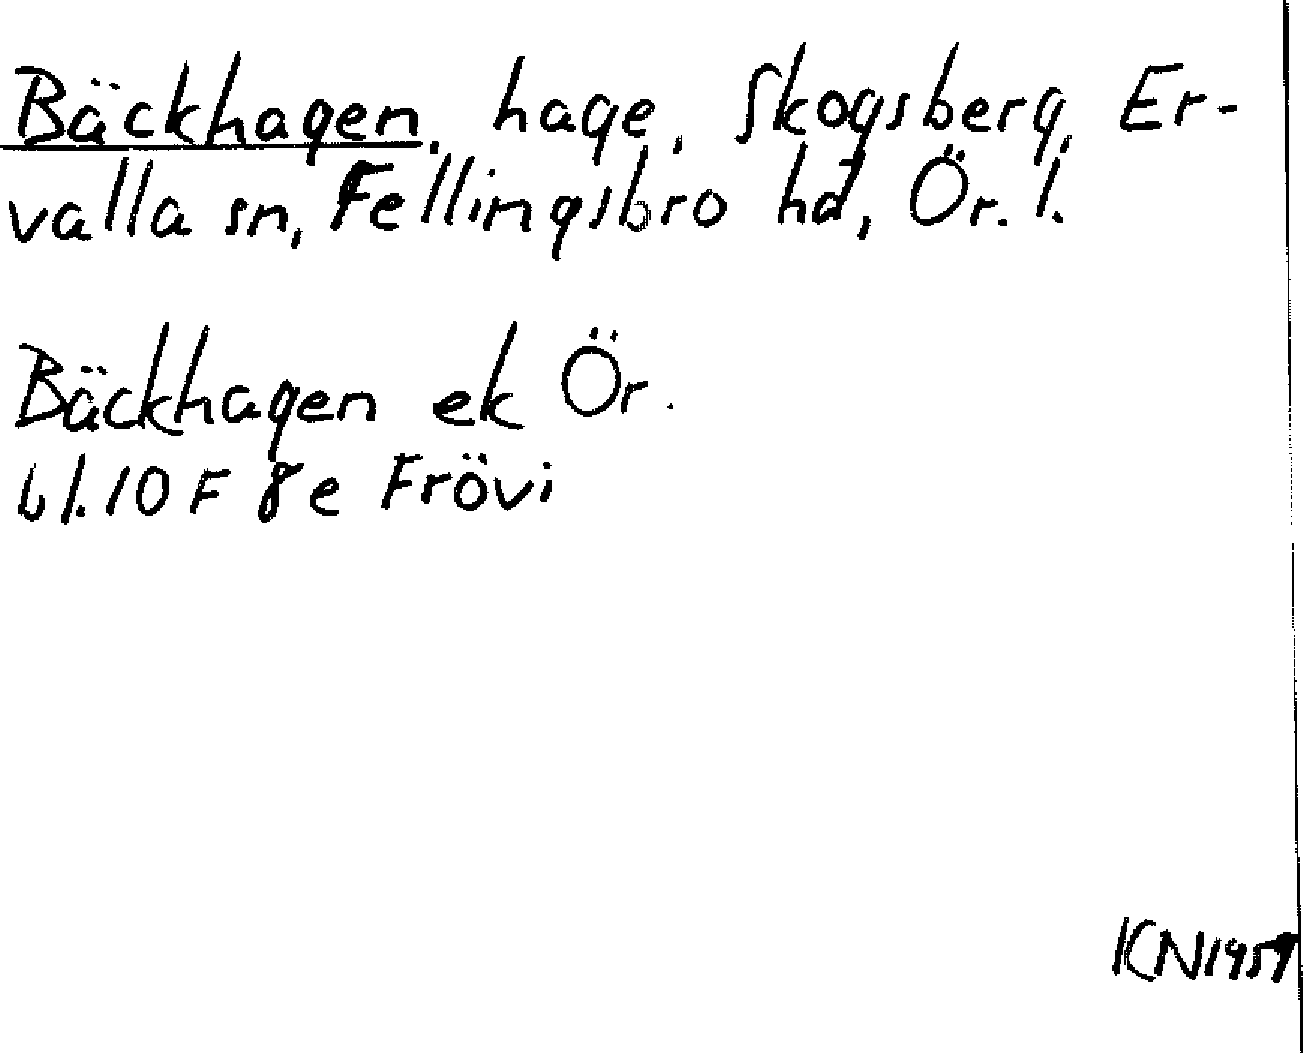 Bäckhagen, hage, Skogsberg, Er-
valla sn, Fellingsbro hd, Ör. l.
Bäckhagen ek Ör.
bl. 10 F 8e Frövi
KN1959